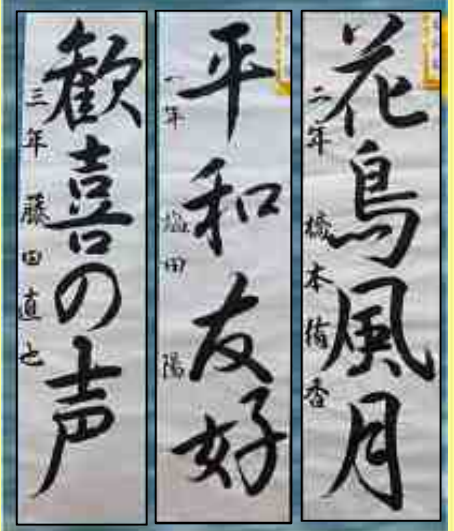 花鳥風月
二年 橋本侑香
平和友好
一年 塩田 陽
歓喜の声
三年 藤田直也